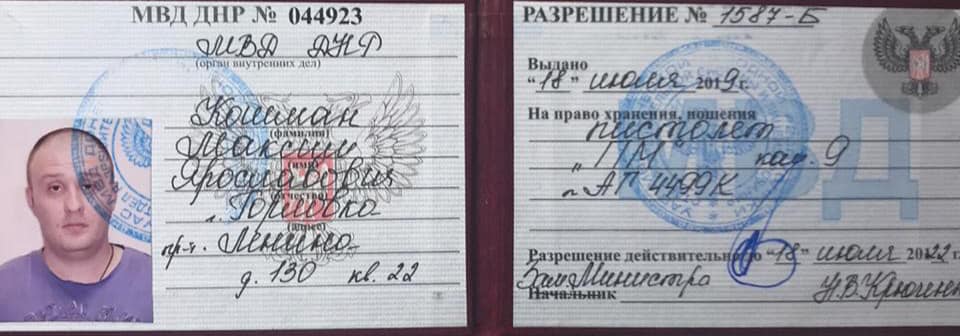 МВД ДНР № 044923
МВД ДНР
(орган внутренних дел)
Кошман
(фамилия)
Максим
(имя)
Ярославович
(отчество)
г. Горловка
(адрес)
пр-т. Ленина
д. 130 кв. 22
РАЗРЕШЕНИЕ № 1587-Б
Выдано
"18" июля 2019 г.
На право хранения, ношения
пистолет
"ПМ" кал. 9
АП 4499К
Разрешение действительно до "18" июля 2022 г.
Зам. Министра
Начальник Н.В. Крюченк